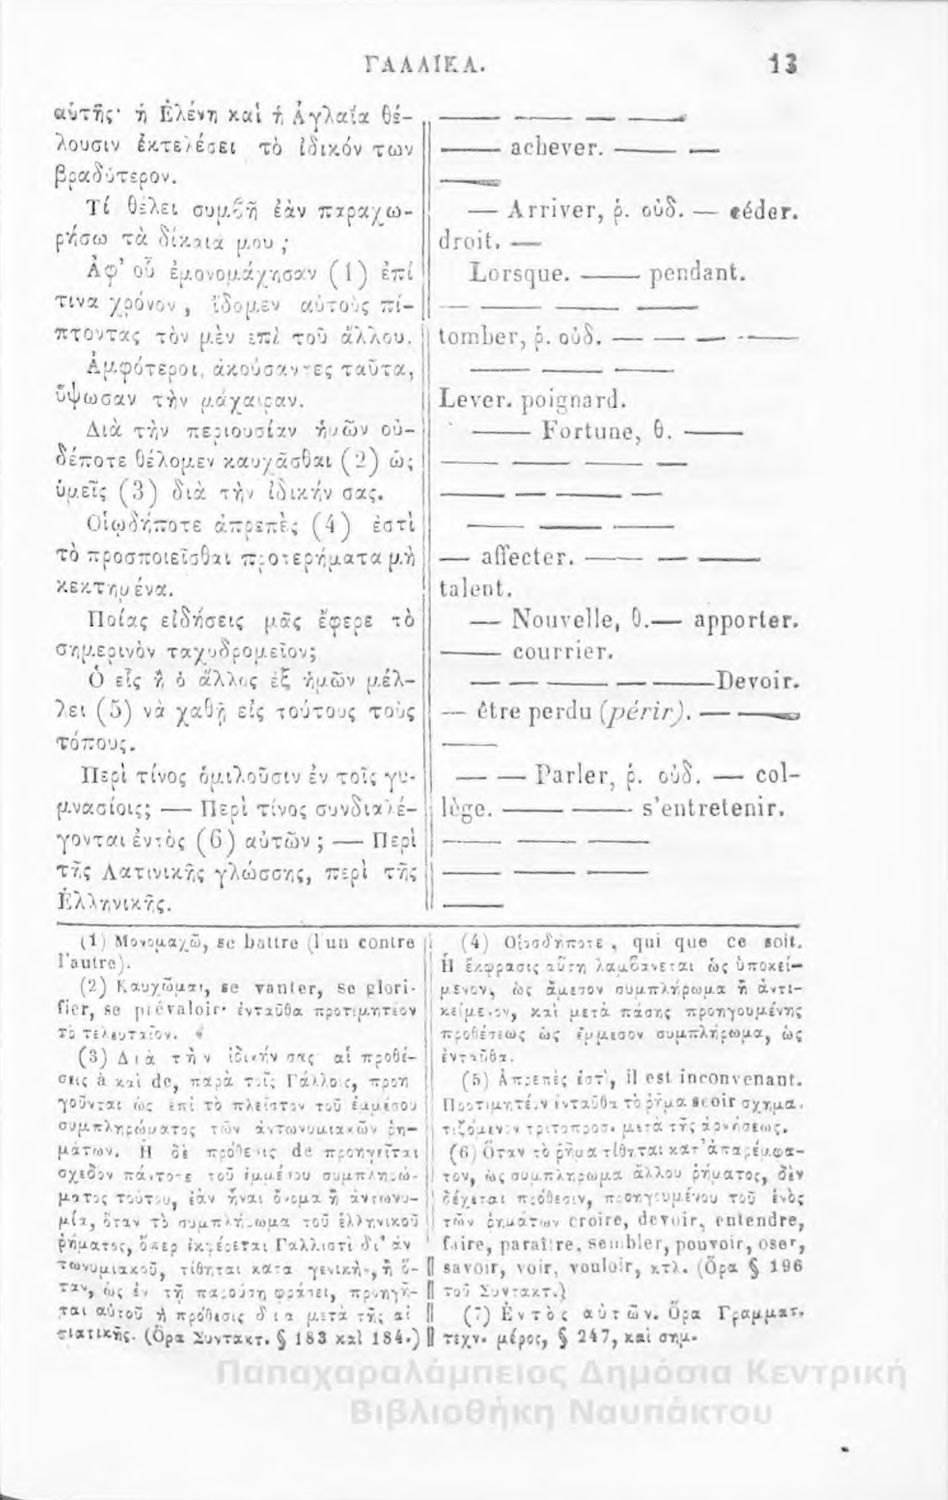 ΓΑΛΛΙΚΑ. 13
αὑτῆς· ἡ Ἑλένη καὶ ἡ Ἀγλαΐα θέ-
λουσιν ἐκτελέσει τὸ ἰδικόν των
βραδύτερον.
Τί θέλει συμβῆ ἐὰν παραχω-
ρήσω τὰ δίκαιά μου ;
Ἀφ' οὗ ἐμονομάχησαν (1) ἐπί
τινα χρόνον , ἴδομεν αὐτοὺς πί-
πτοντας τὸν μὲν ἐπὶ τοῦ ἄλλου.
Ἀμφότεροι, ἀκούσαντες ταῦτα,
ὕψωσαν τὴν μάχαιραν.
Διὰ τὴν περιουσίαν ἡμῶν οὐ-
δέποτε θέλομεν καυχᾶσθαι (2) ὡς
ὑμεῖς (3) διὰ τὴν ἰδικήν σας.
Οἱῳδήποτε ἀπρεπὲς (4) ἐστὶ
τὸ προσποιεῖσθαι προτερήματα μὴ
κεκτημένα.
Ποίας εἰδήσεις μᾶς ἔφερε τὸ
σημερινὸν ταχυδρομεῖον;
Ὁ εἷς ἢ ὁ ἄλλος ἐξ ἡμῶν μέλ-
λει (5) νὰ χαθῇ εἰς τούτους τοὺς
τόπους.
Περὶ τίνος ὁμιλοῦσιν ἐν τοῖς γυ-
μνασίοις; — Περὶ τίνος συνδιαλέ-
γονται ἐντὸς (6) αὐτῶν ; — Περὶ
τῆς Λατινικῆς γλώσσης, περὶ τῆς
Ἑλληνικῆς.
— — — —
— achever. — —
—
— Arriver, ῥ. οὐδ. — céder.
droit. —
Lorsque. — pendant.
— — — —
tomber, ῥ. οὐδ. — — — —
— — —
Lever. poignard.
— Fortune, θ. —
— — — —
— — — —
— — —
— affecter. — — —
talent.
— Nouvelle, θ.— apporter.
— courrier.
— — — —Devoir.
— être perdu (périr). — —
—
— — Parler, ῥ. οὐδ. — col-
lège. — — s'entretenir.
— — —
— — —
—
(1) Μονομαχῶ, se battre (l'un contre
l'autre).
(2) Καυχῶμαι, se vanter, se glori-
fier, se prévaloir· ἐνταῦθα προτιμητέον
τὸ τελευταῖον.
(3) Διὰ τὴν ἰδικήν σας αἱ προθέ-
σεις à καὶ de, παρὰ τοῖς Γάλλοις, προη
γοῦνται ὡς ἐπὶ τὸ πλεῖστον τοῦ ἐμμέσου
συμπληρώματος τῶν ἀντωνυμιακῶν ῥη-
μάτων. Ἡ δὲ πρόθεσις de προηγεῖται
σχεδὸν πάντοτε τοῦ ἐμμέσου συμπληρώ-
ματος τούτου, ἐὰν ἦναι ὄνομα ἢ ἀντωνυ-
μία, ὅταν τὸ συμπλήρωμα τοῦ ἑλληνικοῦ
ῥήματος, ὅπερ ἐκφέρεται Γαλλιστὶ δι' ἀν
τωνυμιακοῦ, τίθηται κατὰ γενικὴν, ἢ ὅ-
ταν, ὡς ἐν τῇ παρούσῃ φράσει, προηγῆ-
ται αὐτοῦ ἡ πρόθεσις διὰ μετὰ τῆς αἰ
τιατικῆς. (Ὅρα Συντακτ. § 183 καὶ 184.)
(4) Οἱοσδήποτε , qui que ce soit.
Ἡ ἔκφρασις αὕτη λαμβάνεται ὡς ὑποκεί-
μενον, ὡς ἄμεσον συμπλήρωμα ἢ ἀντι-
κείμενον, καὶ μετὰ πάσης προηγουμένης
προθέσεως ὡς ἔμμεσον συμπλήρωμα, ὡς
ἐνταῦθα.
(5) Ἀπρεπὲς ἐστὶ, il est inconvenant.
Προτιμητέον ἐνταῦθα τὸ ῥῆμα seoir σχημα.
τιζόμενον τριτοπροσ. μετὰ τῆς ἀρνήσεως.
(6) Ὅταν τὸ ῥῆμα τίθηται κατ' ἀπαρέμφα-
τον, ὡς συμπλήρωμα ἄλλου ῥήματος, δὲν
δέχεται πρόθεσιν, προηγουμένου τοῦ ἑνὸς
τῶν ῥημάτων croire, devoir, entendre,
faire, paraître, sembler, pouvoir, oser,
savoir, voir, vouloir, κτλ. (Ὅρα § 196
τοῦ Συντακτ.)
(7) Ἐντὸς αὐτῶν. Ὅρα Γραμματ.
τεχν. μέρος, § 247, καὶ σημ.
Παπαχαραλάμπειος Δημόσια Κεντρική
Βιβλιοθήκη Ναυπάκτου